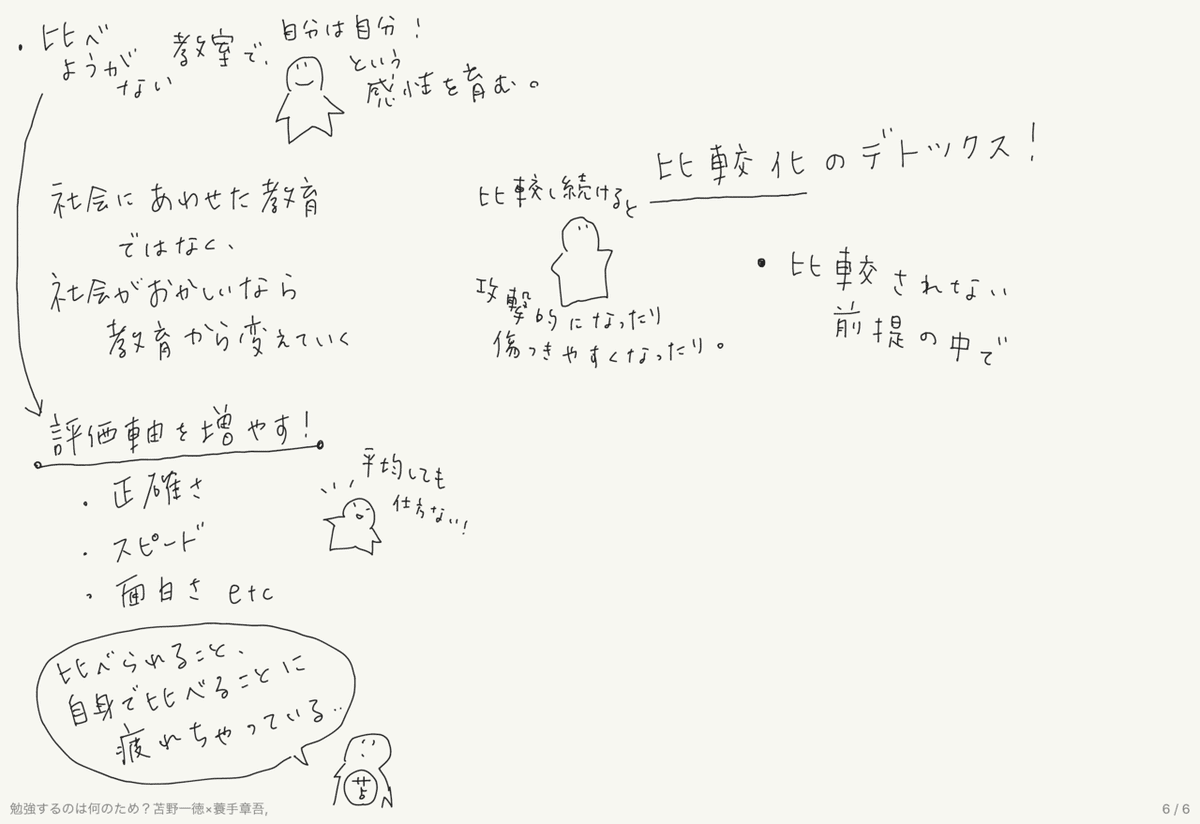 ・比べ
ようが
ない
教室で、
自分は自分！
という
感性を育む。
社会にあわせた教育
ではなく、
社会がおかしいなら
教育から変えていく
評価軸を増やす！
・正確さ
・スピード
・面白さ etc
平均しても
仕方ない！
比べられること、
自身で比べることに
疲れちゃっている‥
苫
比較化のデトックス！
比較し続けると
攻撃的になったり
傷つきやすくなったり。
・比較されない
前提の中で
勉強するのは何のため？苫野一徳×蓑手章吾,
6 / 6